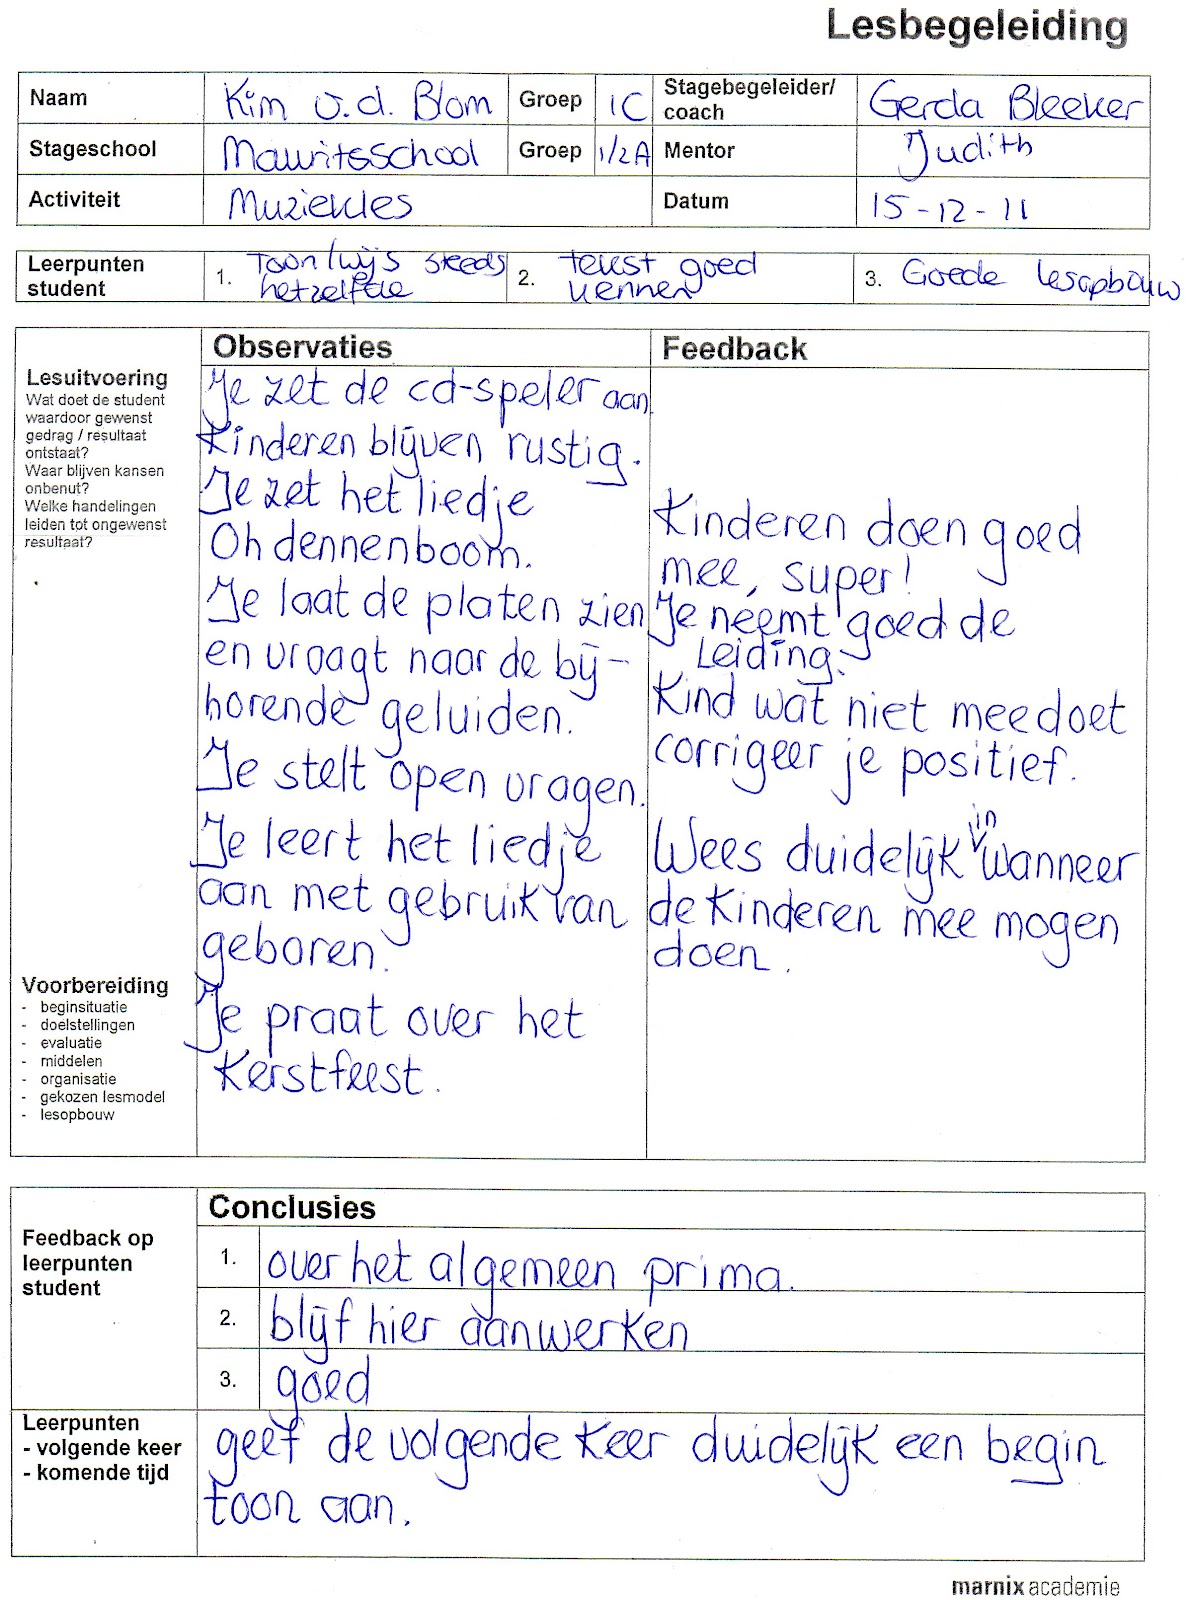 Lesbegeleiding
Naam Kim v.d. Blom Groep 1C Stagebegeleider/
coach Gerda Bleeker
Stageschool Mauritsschool Groep 1/2A Mentor Judith
Activiteit Muziekles Datum 15-12-11
Leerpunten
student
1. Toon/wijs steeds
hetzelfde
2. tekst goed
kennen
3. Goede lesopbouw
Observaties
Feedback
Lesuitvoering
Wat doet de student
waardoor gewenst
gedrag / resultaat
ontstaat?
Waar blijven kansen
onbenut?
Welke handelingen
leiden tot ongewenst
resultaat?
Voorbereiding
- beginsituatie
- doelstellingen
- evaluatie
- middelen
- organisatie
- gekozen lesmodel
- lesopbouw
Je zet de cd-speler aan
kinderen blijven rustig.
Je zet het liedje
Oh dennenboom.
Je laat de platen zien
en vraagt naar de bij-
horende geluiden.
Je stelt open vragen.
Je leert het liedje
aan met gebruik van
gebaren.
Je praat over het
Kerstfeest.
Kinderen doen goed
mee, super!
Je neemt goed de
Leiding.
Kind wat niet meedoet
corrigeer je positief.
Wees duidelijk in wanneer
de kinderen mee mogen
doen.
Conclusies
Feedback op
leerpunten
student
1. over het algemeen prima.
2. blijf hier aanwerken
3. goed
Leerpunten
- volgende keer
- komende tijd
geef de volgende keer duidelijk een begin
toon aan.
marnix academie